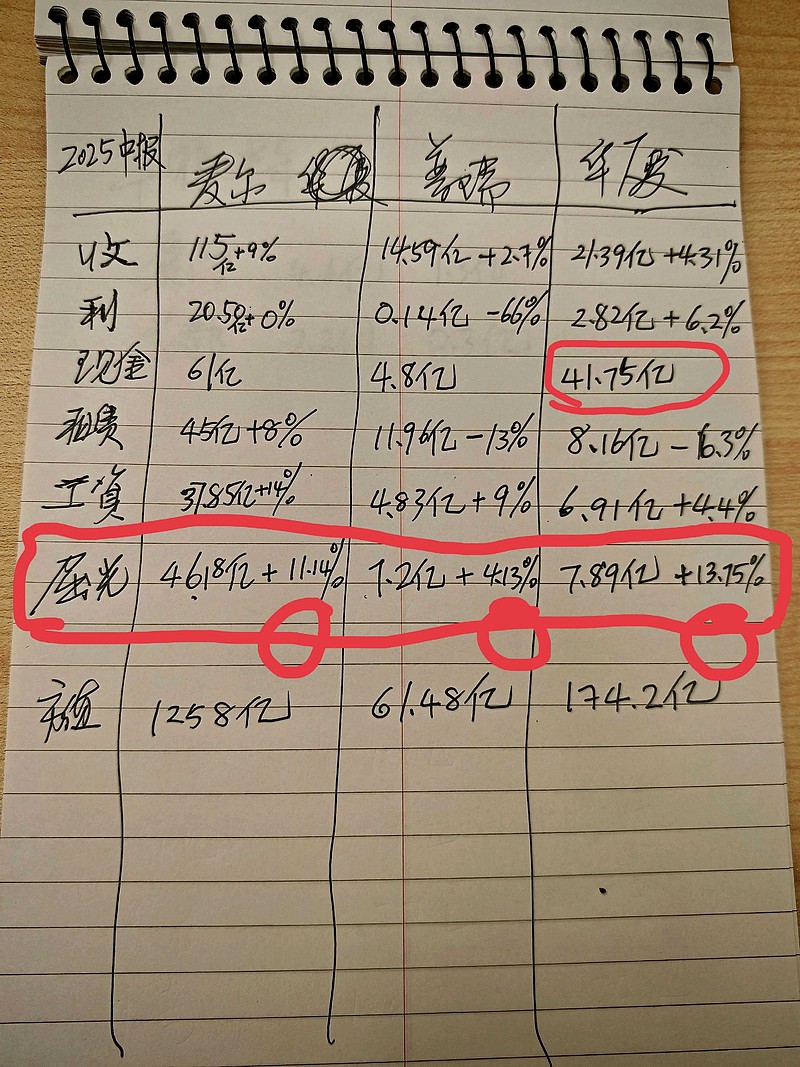 2025中报 麦尔 普瑞 华厦
收 115亿+9% 14.59亿+2.7% 21.39亿+4.31%
利 20.50亿+0% 0.14亿 -66% 2.82亿+6.2%
现金 61亿 4.8亿 41.75亿
租赁 45亿+8% 11.96亿-13% 8.16亿-16.3%
工资 37.85亿+14% 4.83亿+9% 6.91亿+4.4%
屈光 46.18亿+11.14% 7.2亿+4.13% 7.89亿 +13.75%
市值 1258亿 61.48亿 174.2亿